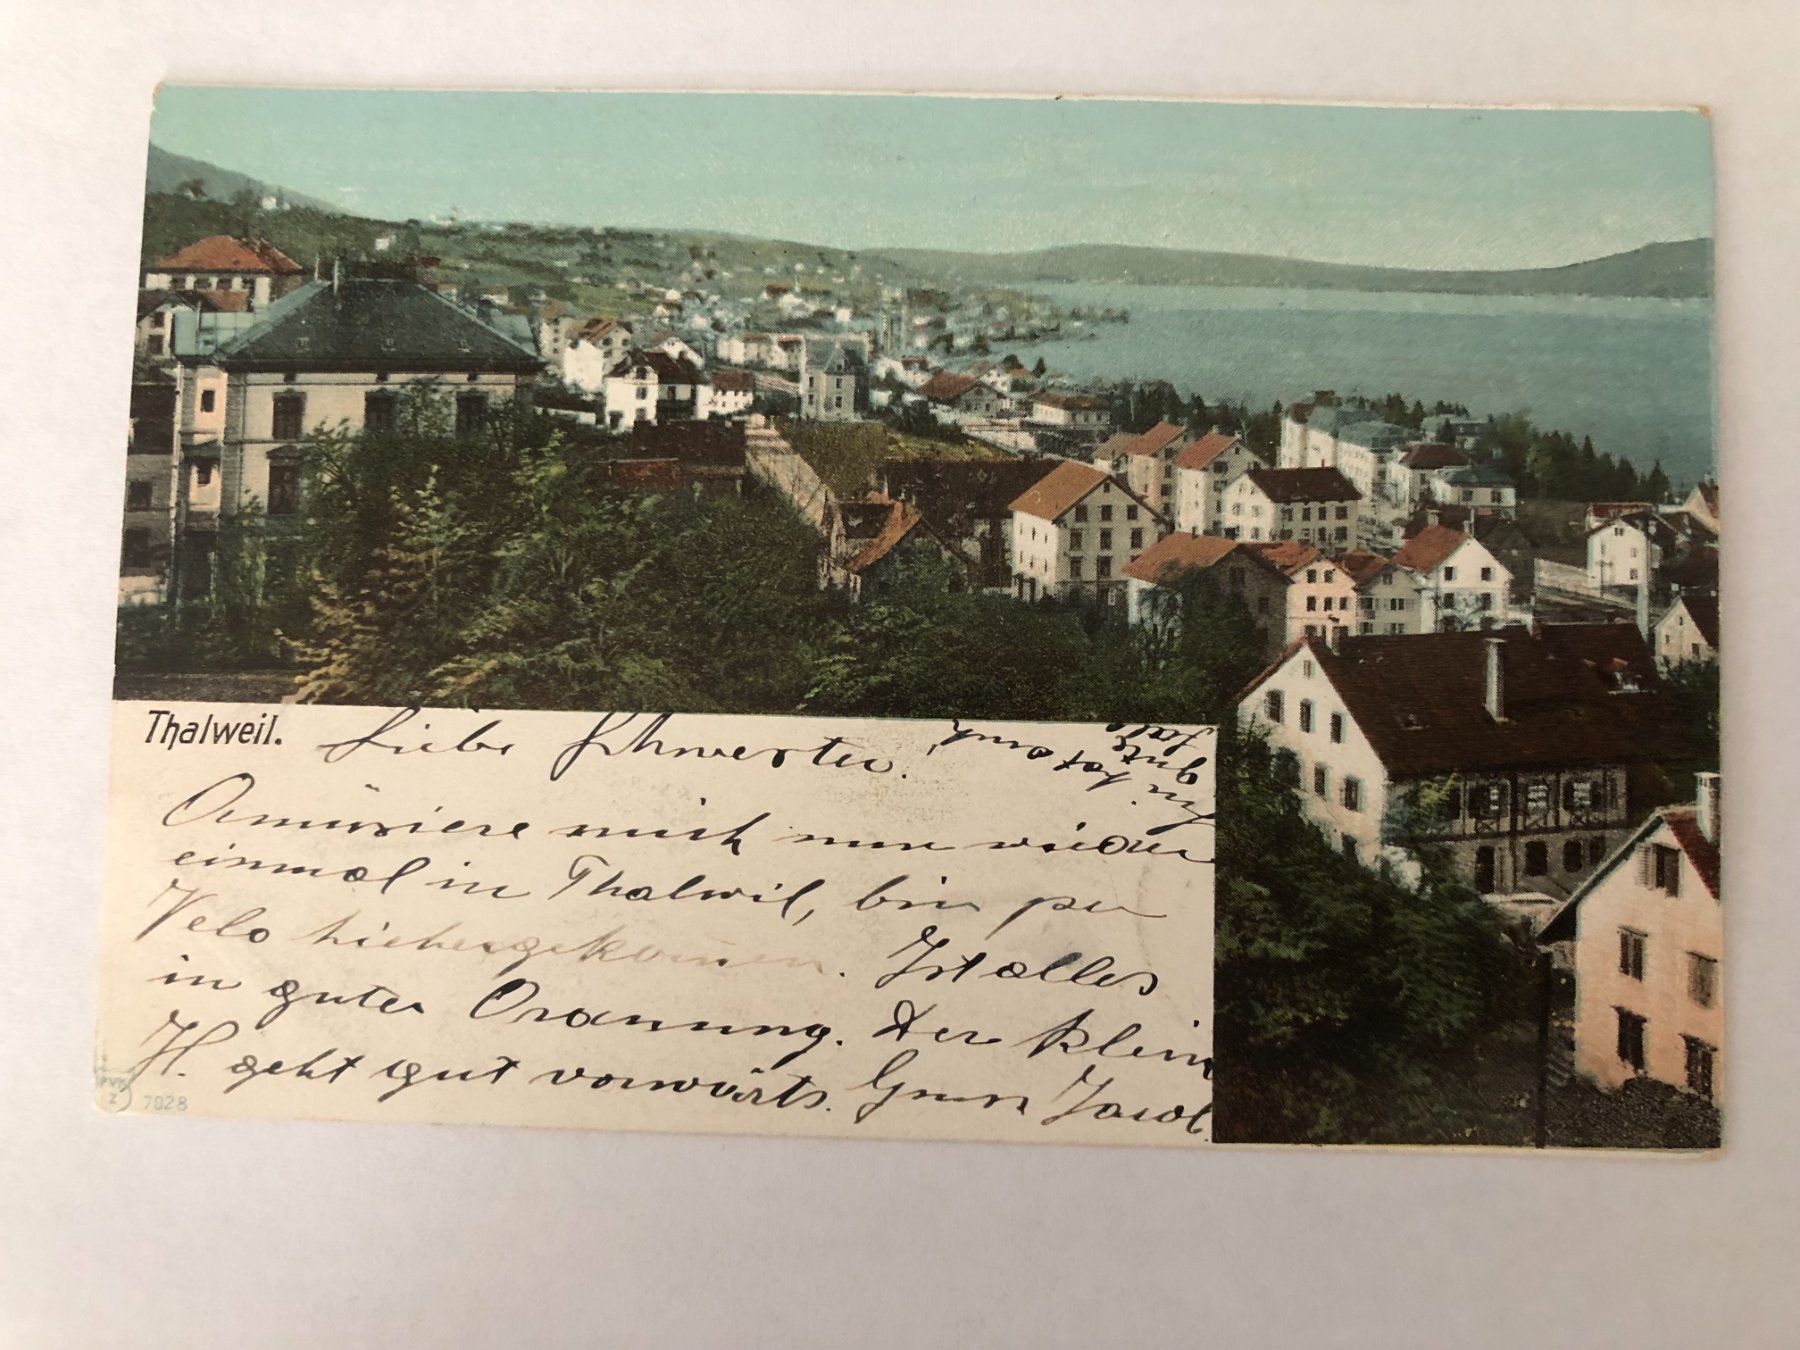 Thalweil.
Liebe Schwester.
Amüsiere mich nun wieder
einmal in Thalwil, bin per
Velo hiehergekom̅en. Ist alles
in guter Ordnung. Der klein
H. geht gut vorwärts. Gruss Jacob.
hat auch
gute
PVK
Z
7028